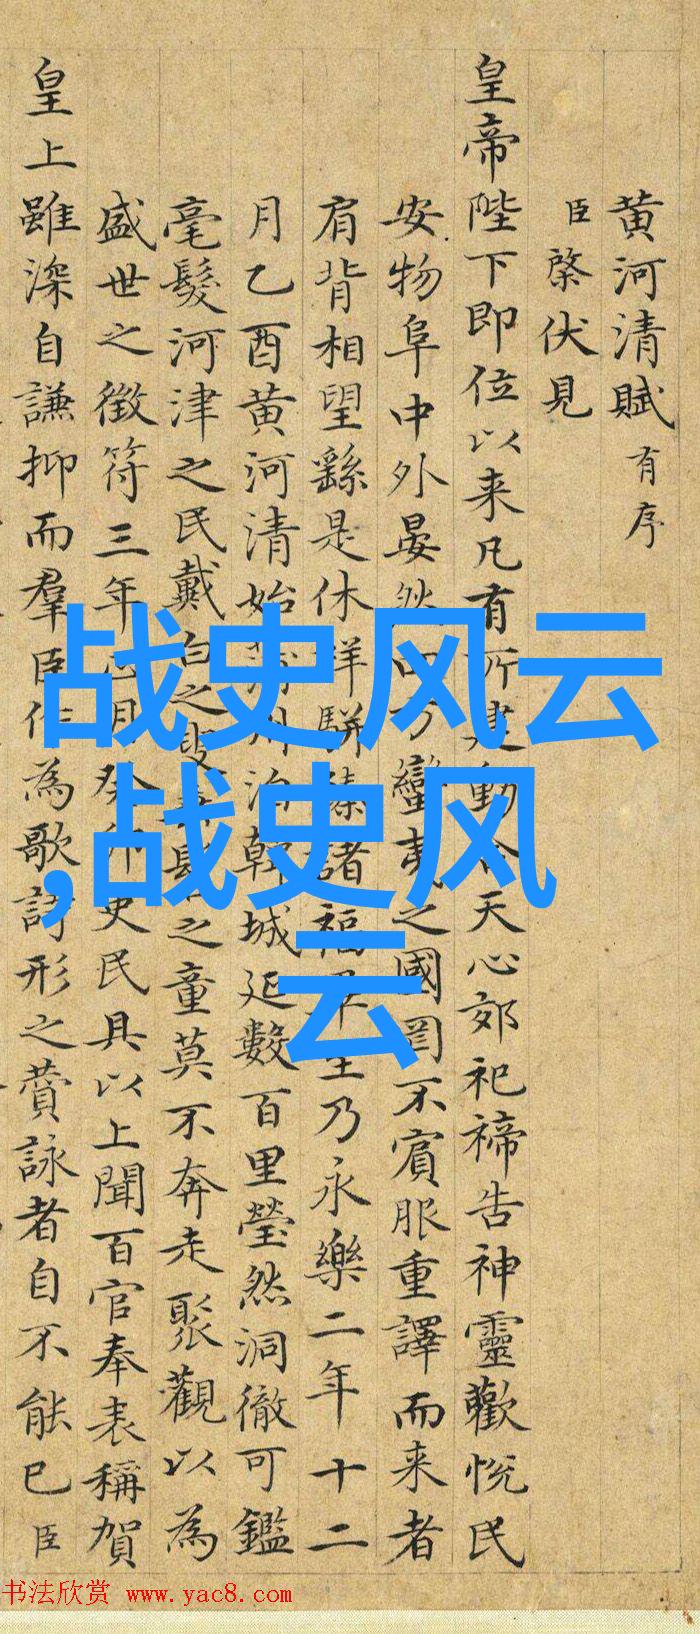 黄河清賦有序
臣棨伏見
皇帝陛下即位以来凡有所建動合天心郊祀禘告神靈歡悦民
安物阜中外晏然四方蠻夷之國罔不賓服重譯而来者
肩背相望繇是休祥駢臻諸福畢至乃永樂二年十二
月乙酉黄河清始蒲州洎韓城延數百里瑩然洞徹可鑑
毫髮河津之民戴白之叟垂髫之童莫不奔走聚觀以為
盛世之徵符三年正月癸卯吏民具以上聞百官奉表稱賀
皇上雖深自謙抑而羣臣作為歌詩形之賛詠者自不能已臣
战史风云
,战史风
云
书法欣赏 www.yac8.com